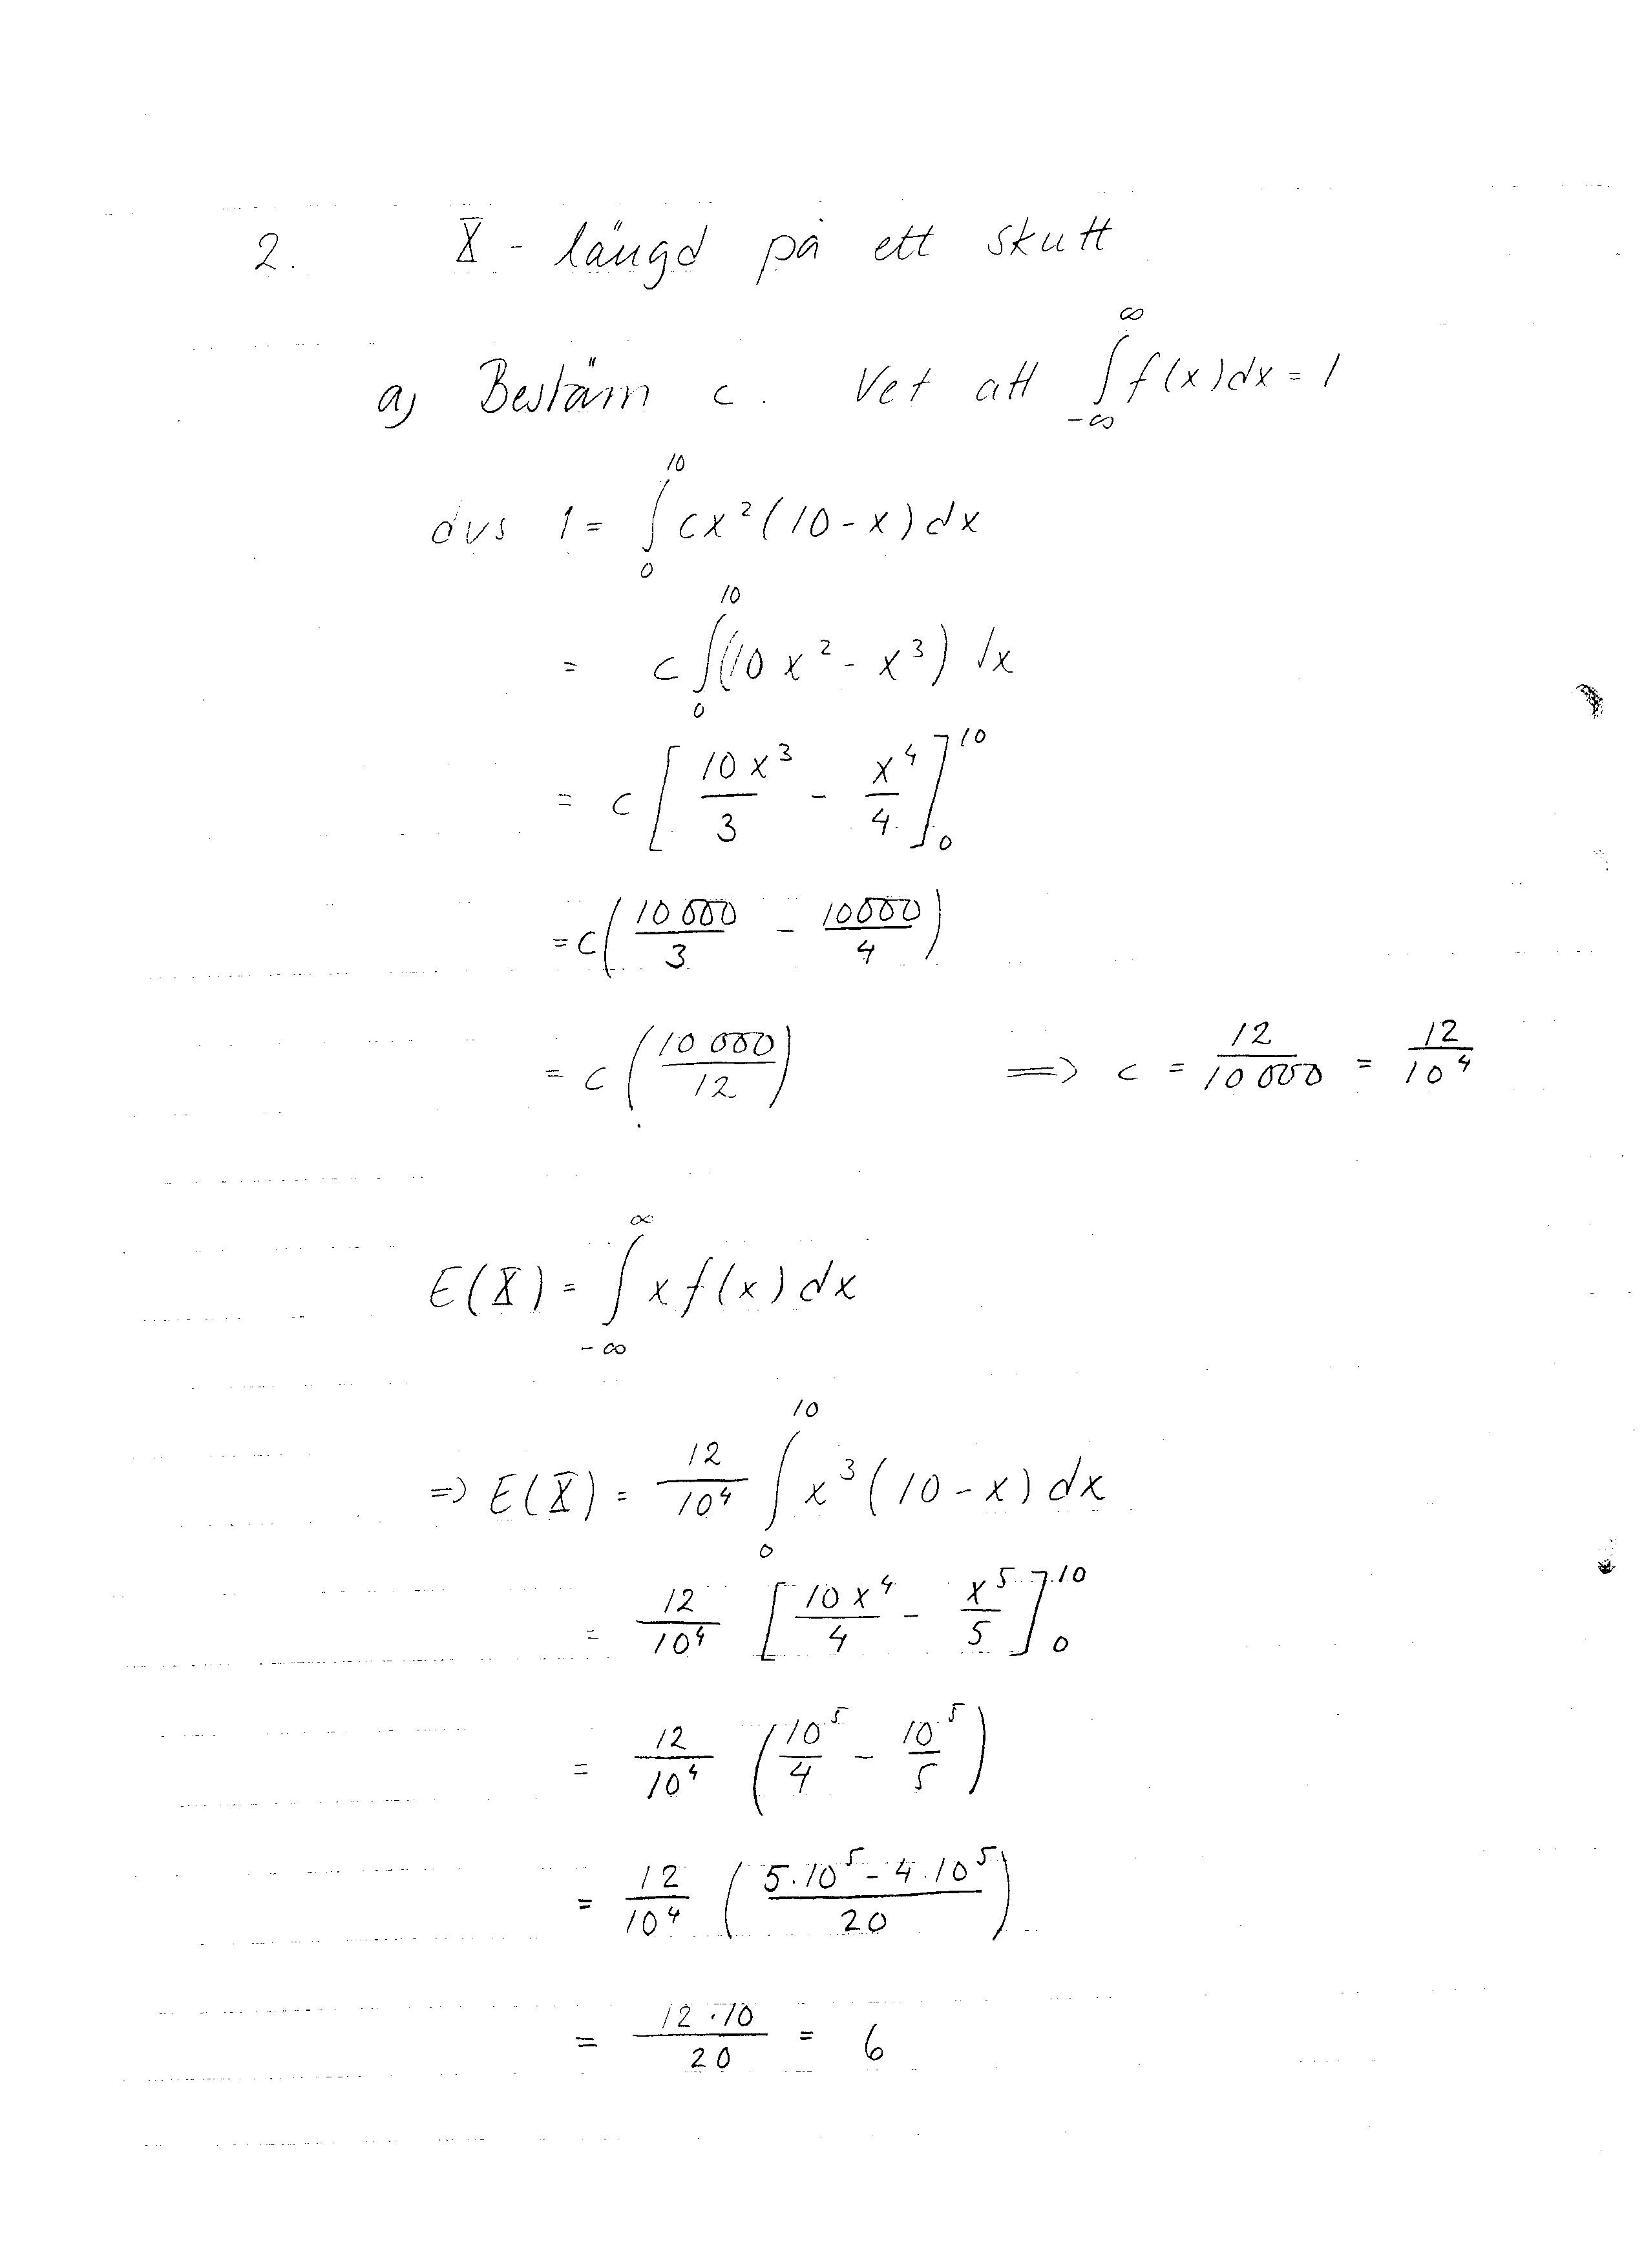 2. X - längd på ett skutt
a) Bestäm c. Vet att ∫_{-∞}^{∞} f(x)dx = 1
dvs 1 = ∫_0^{10} cx²(10-x)dx
= c ∫_0^{10} (10x² - x³) dx
= c [ 10x³/3 - x⁴/4 ]_0^{10}
= c( 10 000/3 - 10000/4 )
= c ( 10 000/12 ) ⟹ c = 12/10 000 = 12/10⁴
E(X) = ∫_{-∞}^{∞} x f(x) dx
⇒ E(X) = 12/10⁴ ∫_0^{10} x³(10-x)dx
= 12/10⁴ [ 10x⁴/4 - x⁵/5 ]_0^{10}
= 12/10⁴ ( 10⁵/4 - 10⁵/5 )
= 12/10⁴ ( (5·10⁵ - 4·10⁵)/20 )
= 12·10/20 = 6